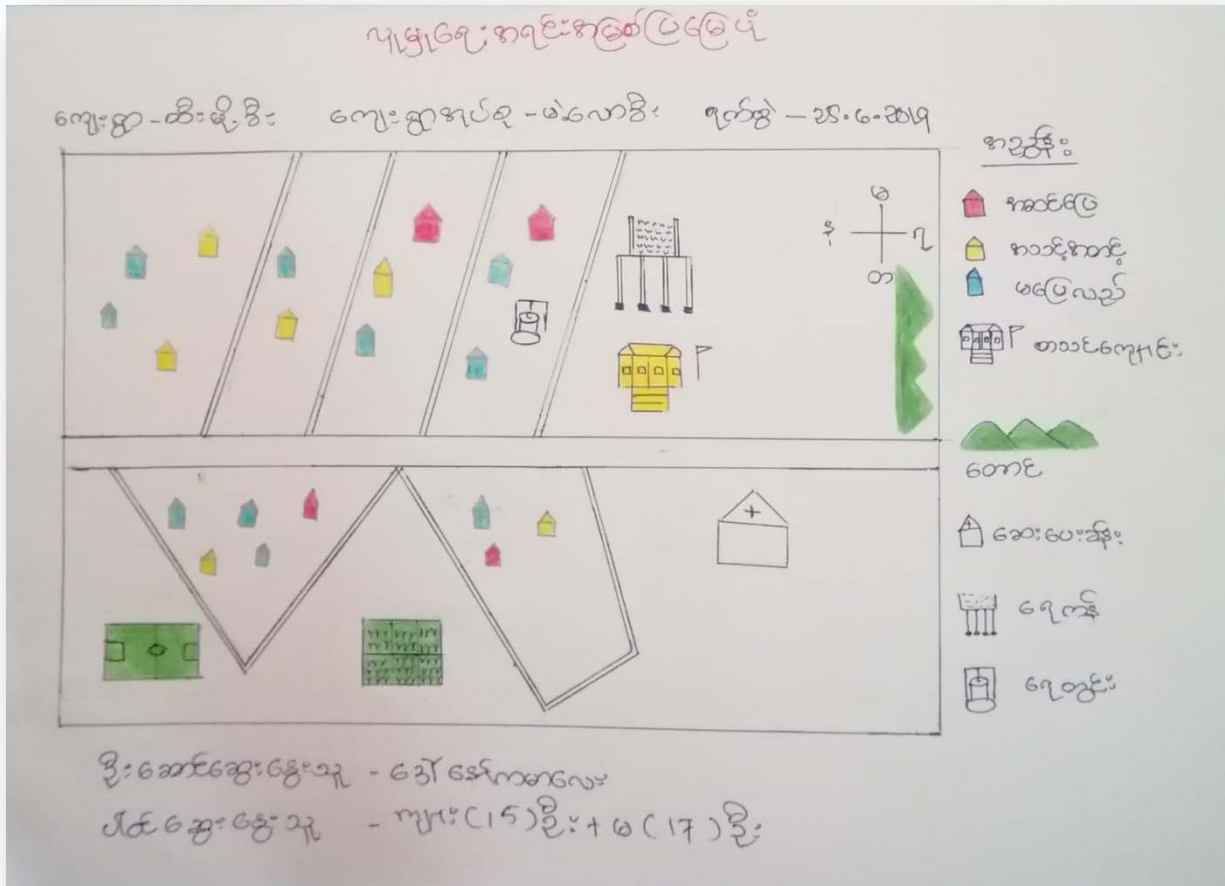 လူမှုရေးအရင်းအမြစ်ပြမြေပုံ
ကျေးရွာ - ထီးမိုးခီး ကျေးရွာအုပ်စု - မဲလောခီး ရက်စွဲ - 25.6.2019
အညွှန်း
အဆင်ပြေ
အသင့်အတင့်
မပြေလည်
စာသင်ကျောင်း
တောင်
ဆေးပေးခန်း
ရေကန်
ရေတွင်း
မ
န
ရ
တ
ဦးဆောင်ဆွေးနွေးသူ - ဒေါ်နော်ကမာလေး
ပါဝင်ဆွေးနွေးသူ - ကျား(15)ဦး + မ(17)ဦး